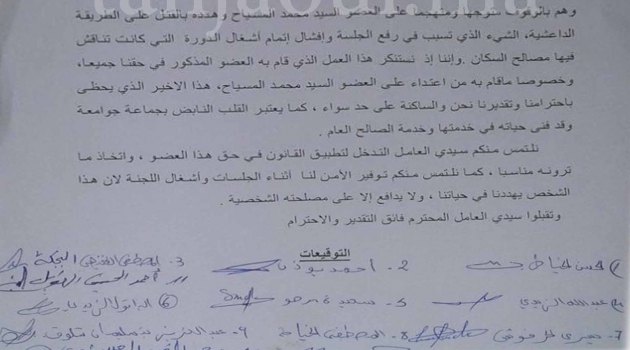 وهم بالوقوف متوجها ومتهجما على العضو السيد محمد المسياح وهدده بالقتل على الطريقة
الداعشية، الشيء الذي تسبب في رفع الجلسة وإفشال إتمام أشغال الدورة التي كانت تناقش
فيها مصالح السكان .وإننا إذ نستنكر هذا العمل الذي قام به العضو المذكور في حقنا جميعا،
وخصوصا ماقام به من اعتداء على العضو السيد محمد المسياح، هذا الاخير الذي يحظى
باحترامنا وتقديرنا نحن والساكنة على حد سواء ، كما يعتبر القلب النابض بجماعة جوامعة
وقد فنى حياته في خدمتها وخدمة الصالح العام .
نلتمس منكم سيدي العامل التدخل لتطبيق القانون في حق هذا العضو ، واتخاذ ما
ترونه مناسبا ، كما نلتمس منكم توفير الأمن لنا أثناء الجلسات وأشغال اللجنة لان هذا
الشخص يهددنا في حياتنا ، ولا يدافع إلا على مصلحته الشخصية .
وتقبلوا سيدي العامل المحترم فائق التقدير والاحترام
التوقيعات
1) لحسن الخياط 2- احمد بوذن 3- المصطفى
احمد الحسين
عبد الله الزيدي 5- سعيدة مرحو 6)
7- 8- المصطفى الخياط 9- عبد العزيز بنسلمان شلوق